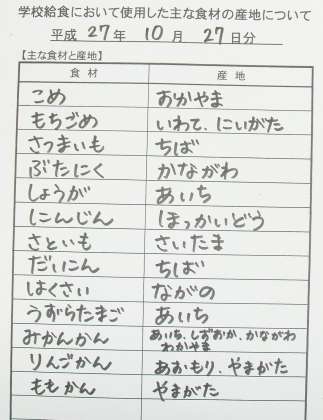 学校給食において使用した主な食材の産地について
平成 27年 10月 27日分
【主な食材と産地】
食材 産地
こめ おかやま
もちごめ いわて、にいがた
さつまいも ちば
ぶたにく かながわ
しょうが あいち
にんじん ほっかいどう
さといも さいたま
だいこん ちば
はくさい ながの
うずらたまご あいち
みかんかん あいち、しずおか、かながわ
わかやま
りんごかん あおもり、やまがた
ももかん やまがた